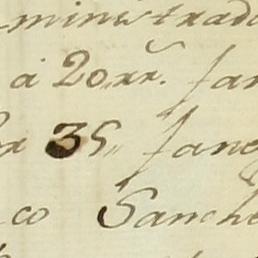 ministrado
á 20 rr. fan
or 35,, fane
co Sanche